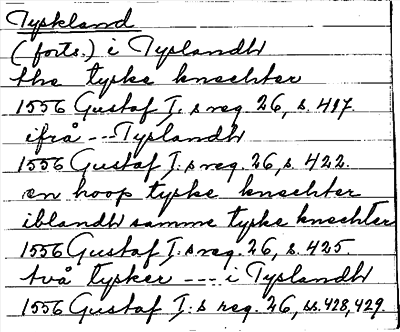 Tyskland
(forts.) i Tyslandh
the tyske knechter
1556 Gustaf I:s reg. 26, s. 417.
ifrå --- Tyslandh
1556 Gustaf I:s reg. 26, s. 422.
en hoop tyske knechter
iblandh samme tyske knechter
1556 Gustaf I:s reg. 26, s. 425.
två tysker ---- i Tyslandh
1556 Gustaf I:s reg. 26, ss. 428, 429.